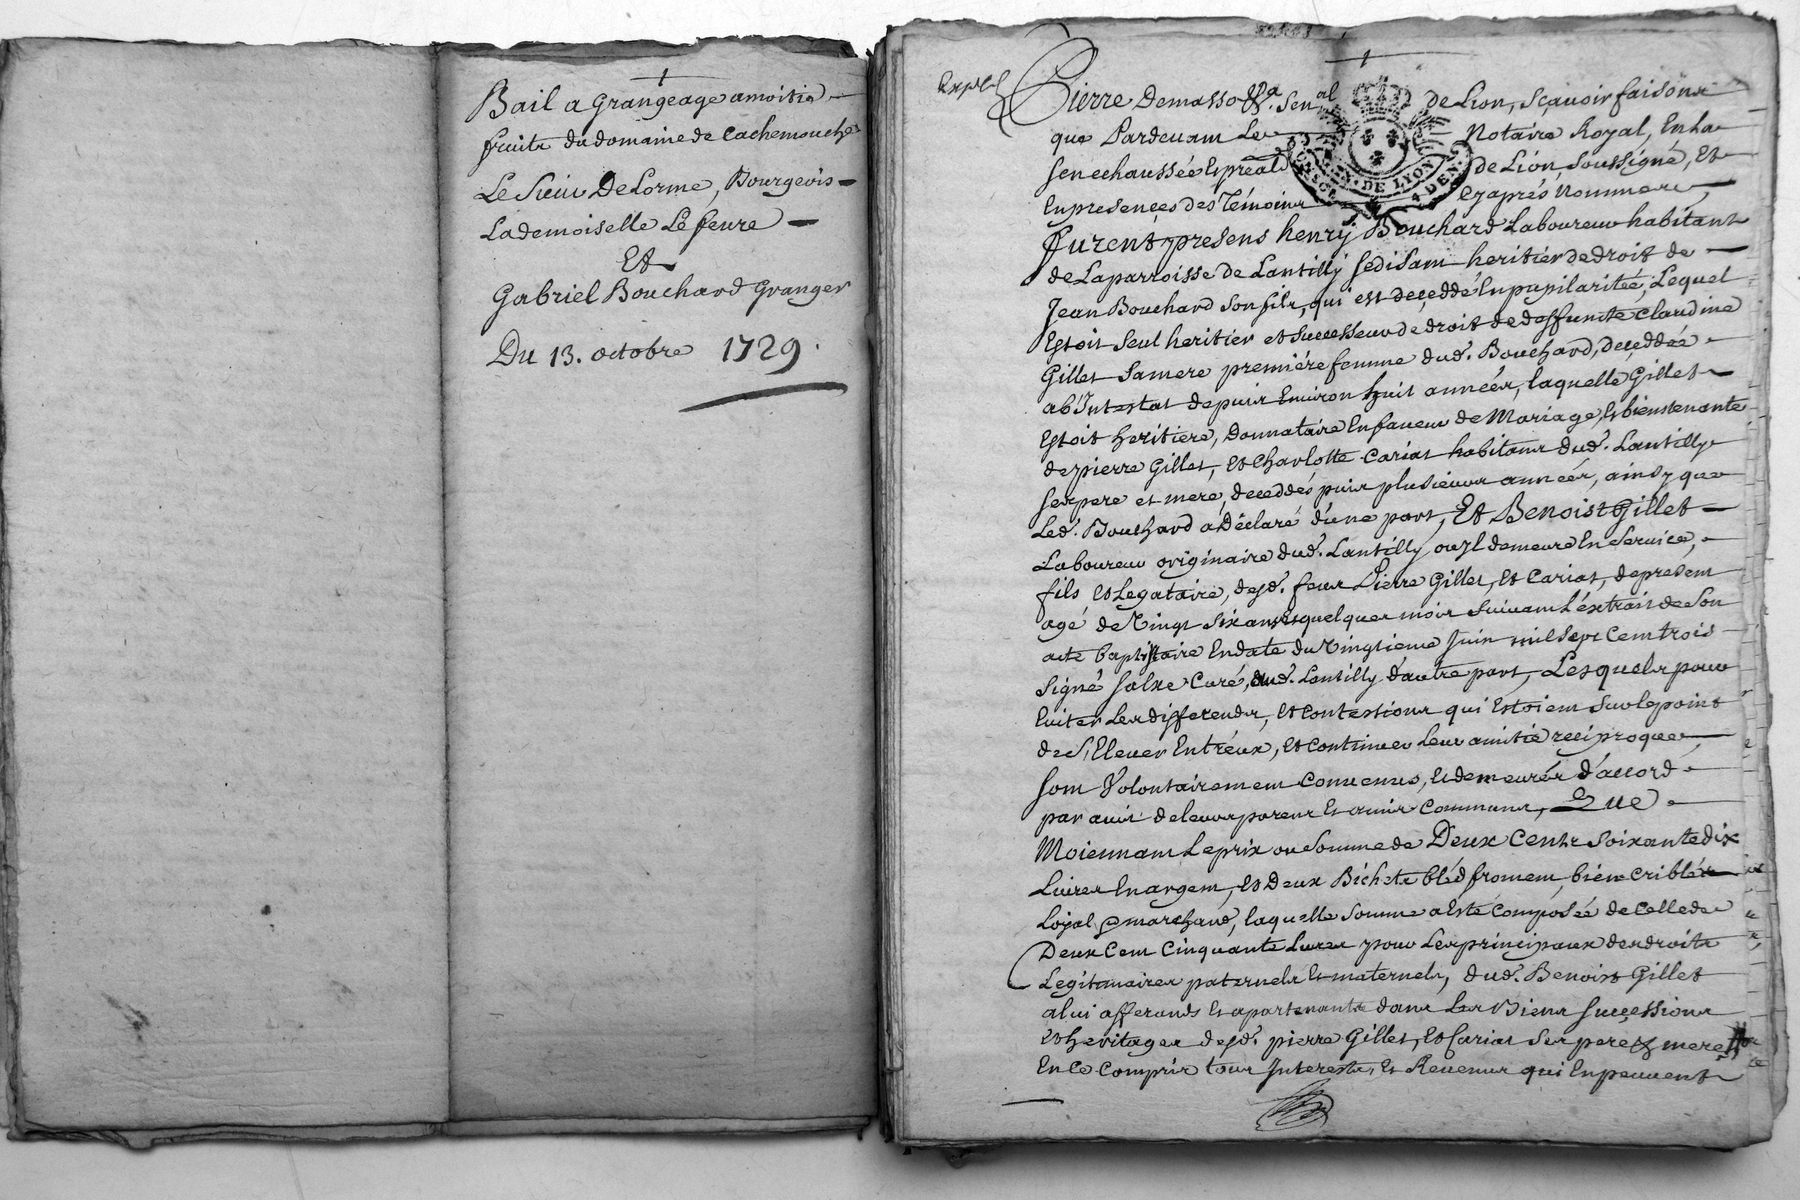 Bail a Grangeage amoitié
fruits du domaine de Cachemouche
Le Sieur DeLorme, Bourgeois
Lademoiselle Lefevre
Et
Gabriel Bouchard Granger
Du 13. octobre 1729.
Pierre Demasso Sen.al de Lion, Sçavoir faisons
que Pardevant Le Notaire Royal, En la
Senechaussée Et de Lion, soussigné, Et
En presences des Témoins Cyaprés Nommez,
furent presens henry Bouchard Laboureur habitant
de Laparroisse de Lantilly se disant heritier de droit de
Jean Bouchard son fils, qui est deçeddé En pupilarité, Lequel
Estoit seul heritier et successeur de droit de deffuncte Claudine
Gillet sa mere premiére femme dud. Bouchard, deçeddée
ab Intestat depuis Environ huit années, laquelle Gillet
Estoit heritiere, donnataire En faveur de Mariage, Et bienstenante
de pierre Gillet, Et Charlotte Cariat habitans dud. Lantilly
ses pere et mere, deceddés puis plusieurs années, ainsy que
Led. Bouchard a Déclaré d'une part, Et Benoist Gillet
Laboureur originaire dud. Lantilly ou Il demeure En service,
fils Et Legataire, desd. feux Pierre Gillet, Et Cariat, de present
agé de Vingt six ans Et quelques mois suivant L'extrait de son
acte baptistaire En date du Vingtieme Juin mil sept Cent trois
signé Curé, dud. Lantilly d'autre part, Lesquels pour
Eviter Les differends, Et Contestions qui Estoient sur le point
de s'Elever Entréux, Et Continuer Leur amitié reciproque,
sont Volontairement Convenus, Et demeurés d'accord
par avis de leurs parens Et amis communs, Que
Moiennant Le prix ou somme de Deux Cents soixante dix
Livres En argent, Et deux Bichets bléd froment, bien criblés
Loyal & marchand, laquelle somme a Esté Composée de Celle de
Deux Cent Cinquante Livres pour Les principaux des droits
Legitimaires paternels Et maternels, dud. Benoist Gillet
a lui afferants Et apartenants dans Les Biens successions
Et heritages desd. pierre Gillet, Et Cariat ses pere & mere
En ce Compris tous Interests, Et Revenus qui En peuvent